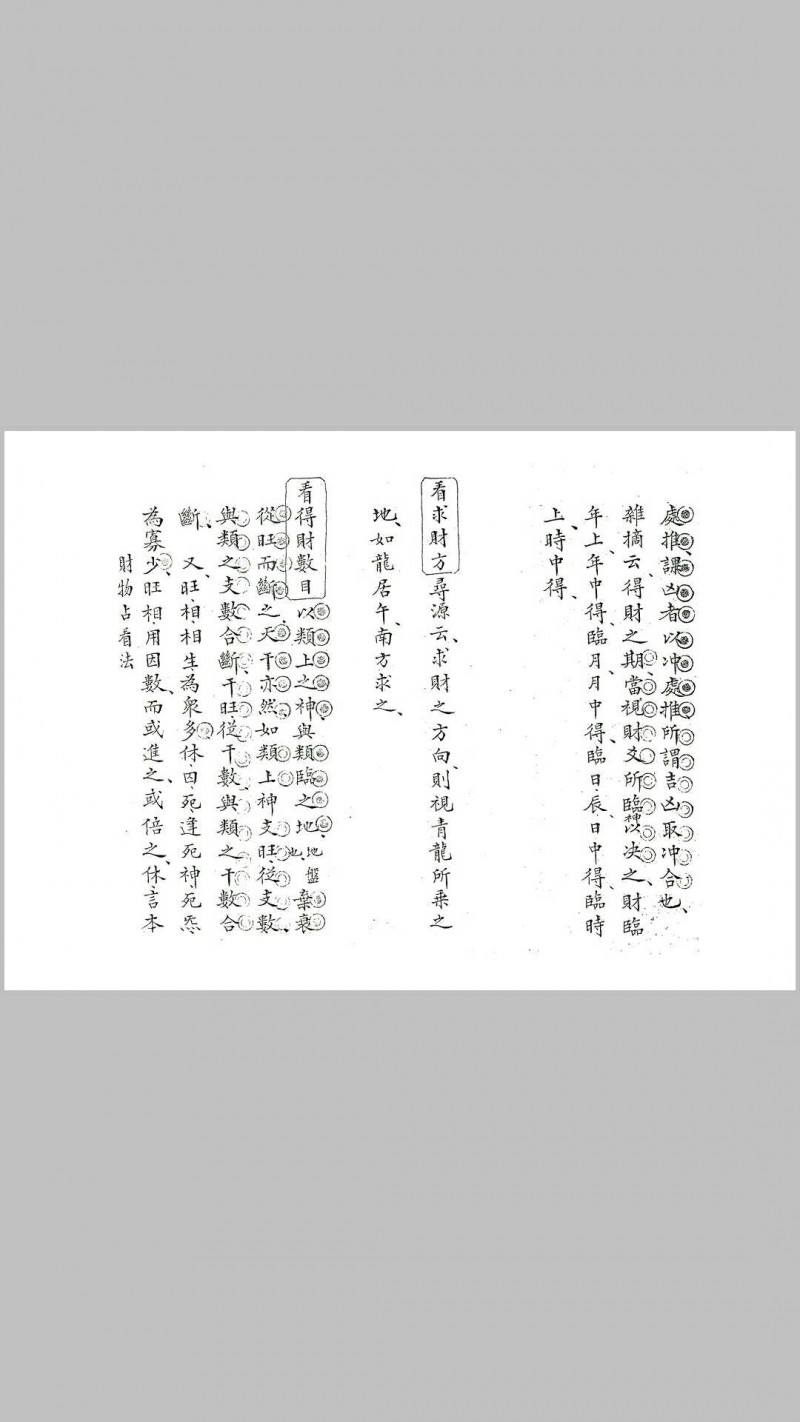 處推、謀凶者以冲處推、所謂吉凶取冲合也、
雜摘云、得財之期、當視財爻所臨神以决之、財臨
年上、年中得、臨月、月中得、臨日辰、日中得、臨時
上、時中得、
看求財方 尋源云、求財之方向、則視青龍所乘之
地、如龍居午、南方求之、
看得財數目 以類上之神、與類臨之地、地盤棄衰
從旺而斷之、天干亦然、如類上神支旺、從支數、
與類之支數合斷、干旺從干數、與類之干數合
斷、又、旺相相生為衆多、休囚死逢死神死炁
為寡少、旺相用因數、而或進之、或倍之、休言本
財物占看法